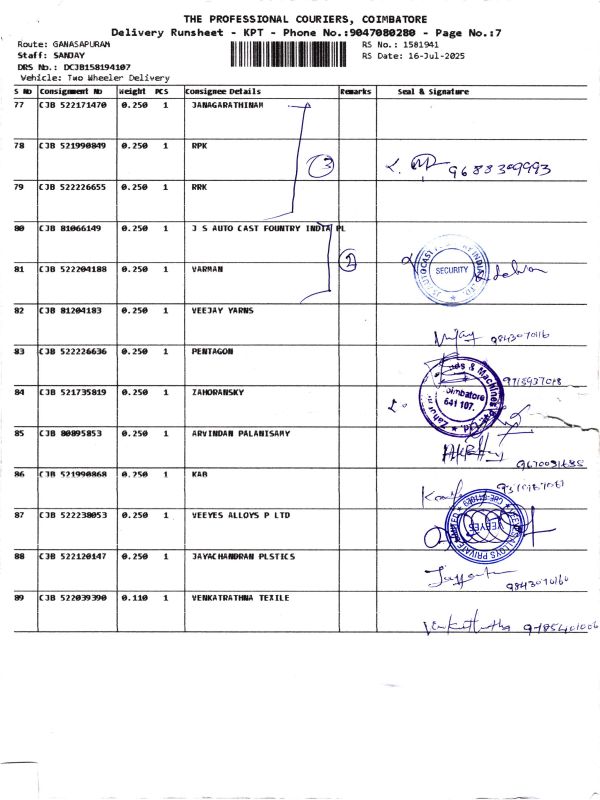 THE PROFESSIONAL COURIERS, COIMBATORE
Delivery Runsheet - KPT - Phone No.:9047080280 - Page No.:7
Route: GANASAPURAM
RS No.: 1581941
Staff: SANJAY
RS Date: 16-Jul-2025
DRS No.: DCJB158194107
Vehicle: Two Wheeler Delivery
S No Consignment No Weight PCS Consignee Details Remarks Seal & Signature
77 CJB 522171470 0.250 1 JANAGARATHINAM
78 CJB 521990849 0.250 1 RPK
3
9683309993
79 CJB 522226655 0.250 1 RRK
80 CJB 81066149 0.250 1 J S AUTO CAST FOUNTRY INDIA PL
2
81 CJB 522204188 0.250 1 VARMAN
SECURITY
82 CJB 81204183 0.250 1 VEEJAY YARNS
9843070116
83 CJB 522226636 0.250 1 PENTAGON
84 CJB 521735819 0.250 1 ZAHORANSKY
& Machines
Coimbatore
641 107.
85 CJB 80895853 0.250 1 ARVINDAN PALANISAMY
86 CJB 521990868 0.250 1 KAB
87 CJB 522238053 0.250 1 VEEYES ALLOYS P LTD
VEEYES
88 CJB 522120147 0.250 1 JAYACHANDRAN PLSTICS
9843070160
89 CJB 522039390 0.110 1 VENKATRATHNA TEXILE